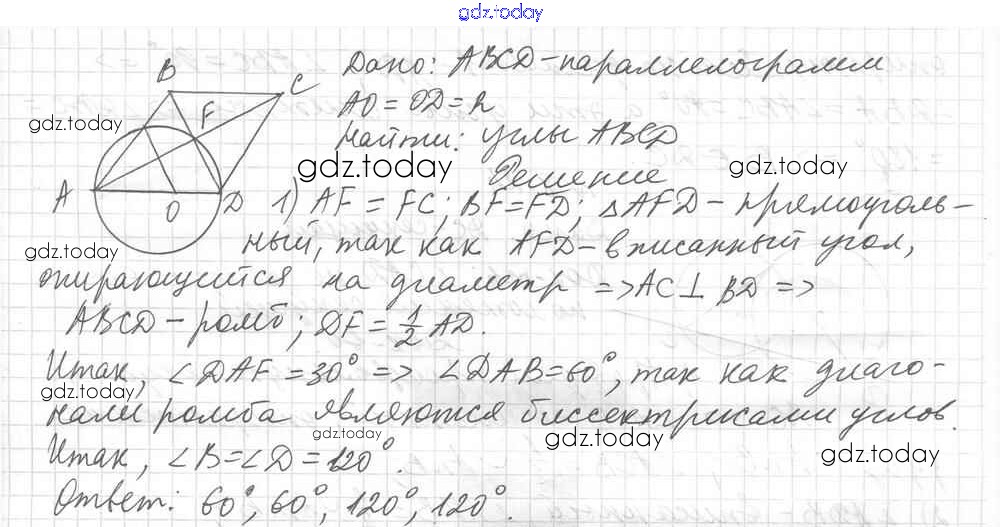 gdz.today
Дано: ABCD-параллелограмм
B
C
AO = OD = R
F
gdz.today
Найти: углы ABCD
gdz.today
gdz.today
Решение
A
O
D
1) AF = FC; BF = FD; △AFD - прямоуголь-
ный, так как AFD - вписанный угол,
gdz.today
опирающийся на диаметр => AC ⊥ BD =>
ABCD - ромб; DF = 1/2 AD.
Итак, ∠DAF = 30° => ∠DAB = 60°, так как диаго-
gdz.today
нали ромба являются биссектрисами углов.
gdz.today
gdz.today
Итак, ∠B = ∠D = 120°.
gdz.today
Ответ: 60°, 60°, 120°, 120°.